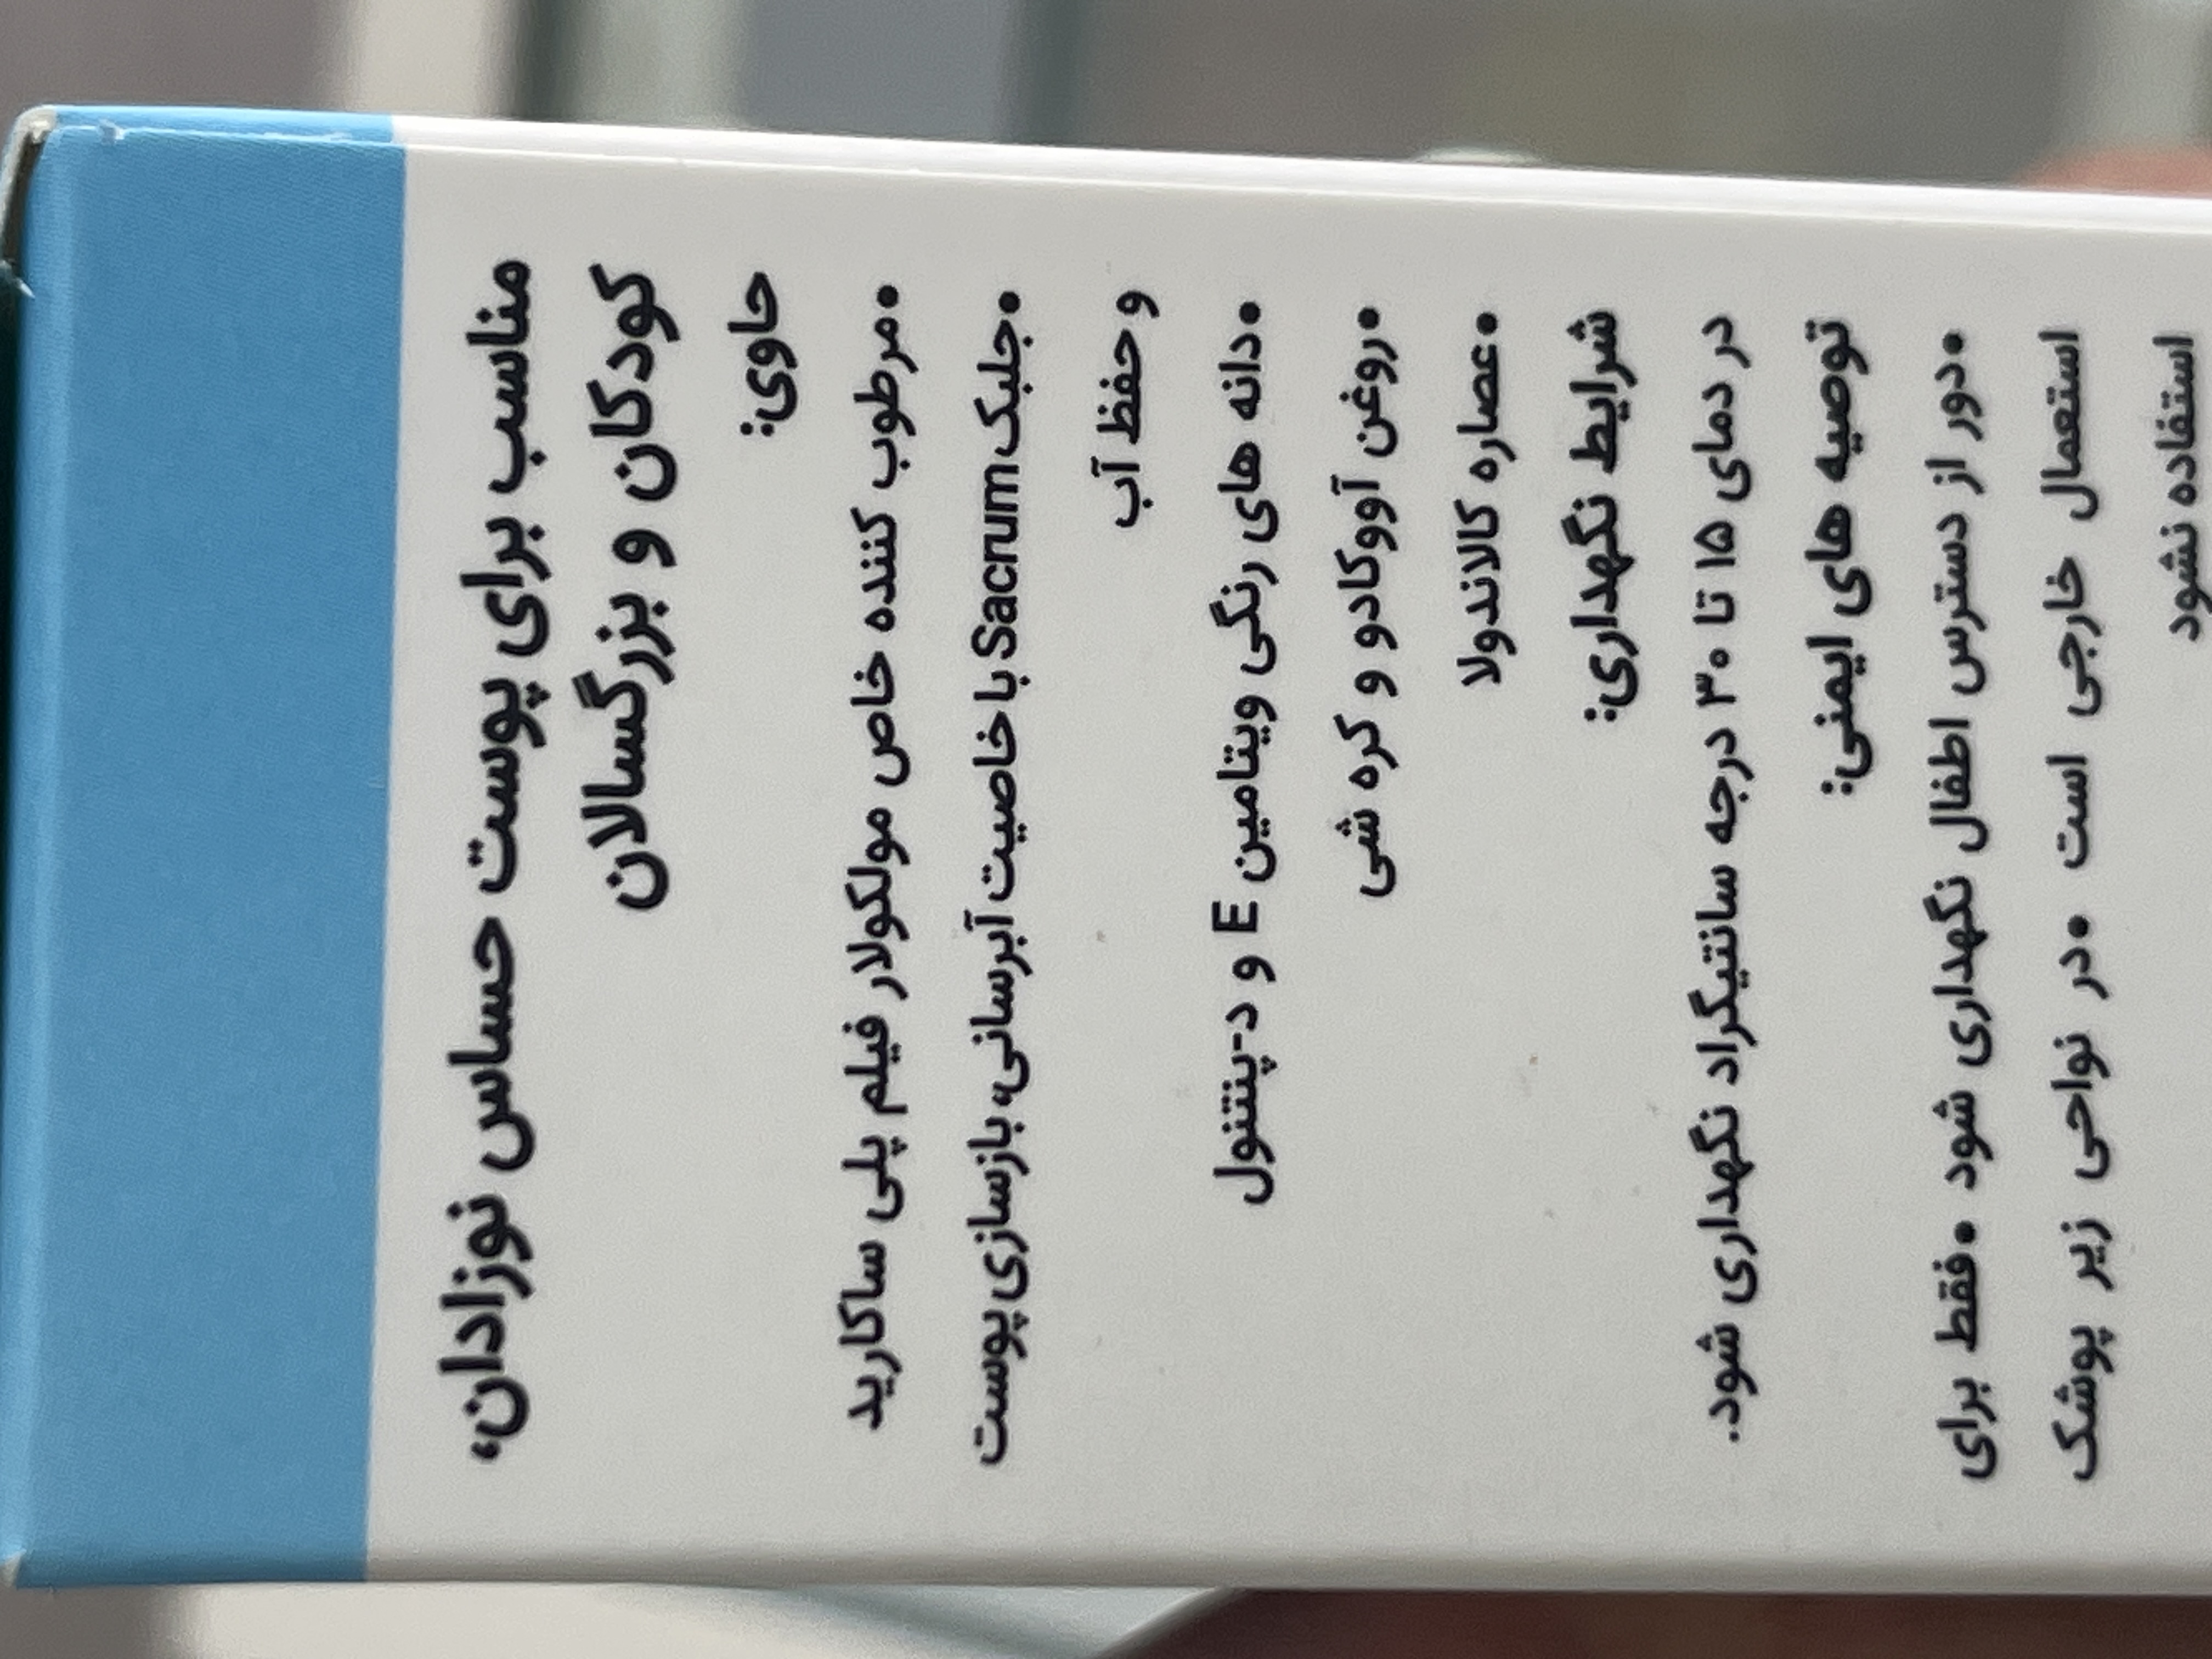 مناسب برای پوست حساس نوزادان،
کودکان و بزرگسالان
حاوی:
•مرطوب کننده خاص مولکولار فیلم پلی ساکارید
•جلبک Sacrum با خاصیت آبرسانی، بازسازی پوست
و حفظ آب
•دانه های رنگی ویتامین E و د-پنتنول
•روغن آووکادو و کره شی
•عصاره کالاندولا
شرایط نگهداری:
در دمای ۱۵ تا ۳۰ درجه سانتیگراد نگهداری شود.
توصیه های ایمنی:
•دور از دسترس اطفال نگهداری شود •فقط برای
استعمال خارجی است •در نواحی زیر پوشک
استفاده نشود